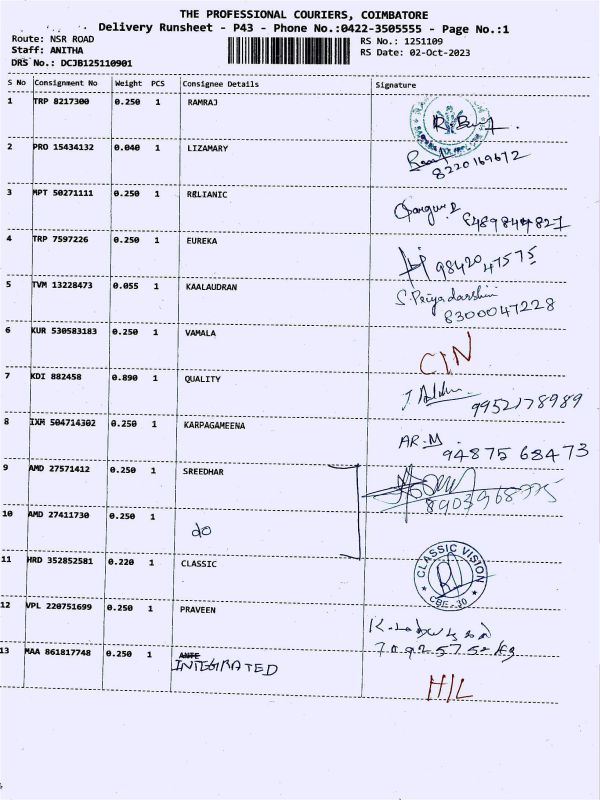 THE PROFESSIONAL COURIERS, COIMBATORE
Delivery Runsheet - P43 - Phone No.:0422-3505555 - Page No.:1
Route: NSR ROAD RS No.: 1251109
Staff: ANITHA RS Date: 02-Oct-2023
DRS No.: DCJB125110901
S No Consignment No Weight PCS Consignee Details Signature
1 TRP 8217300 0.250 1 RAMRAJ
2 PRO 15434132 0.040 1 LIZAMARY
8220169672
3 MPT 50271111 0.250 1 RELIANIC
8489844827
4 TRP 7597226 0.250 1 EUREKA
9842047575
5 TVM 13228473 0.055 1 KAALAUDRAN S. Priyadarshini
8300047228
6 KUR 530583183 0.250 1 VAMALA
CIN
7 KDI 882458 0.890 1 QUALITY
9952178989
8 IXM 504714302 0.250 1 KARPAGAMEENA AR.M
94875 68473
9 AMD 27571412 0.250 1 SREEDHAR
10 AMD 27411730 0.250 1
do
11 HRD 352852581 0.220 1 CLASSIC CLASSIC VISION
CBE - 30
12 VPL 220751699 0.250 1 PRAVEEN
13 MAA 861817748 0.250 1 ANTE
INTEGRATED
H/L